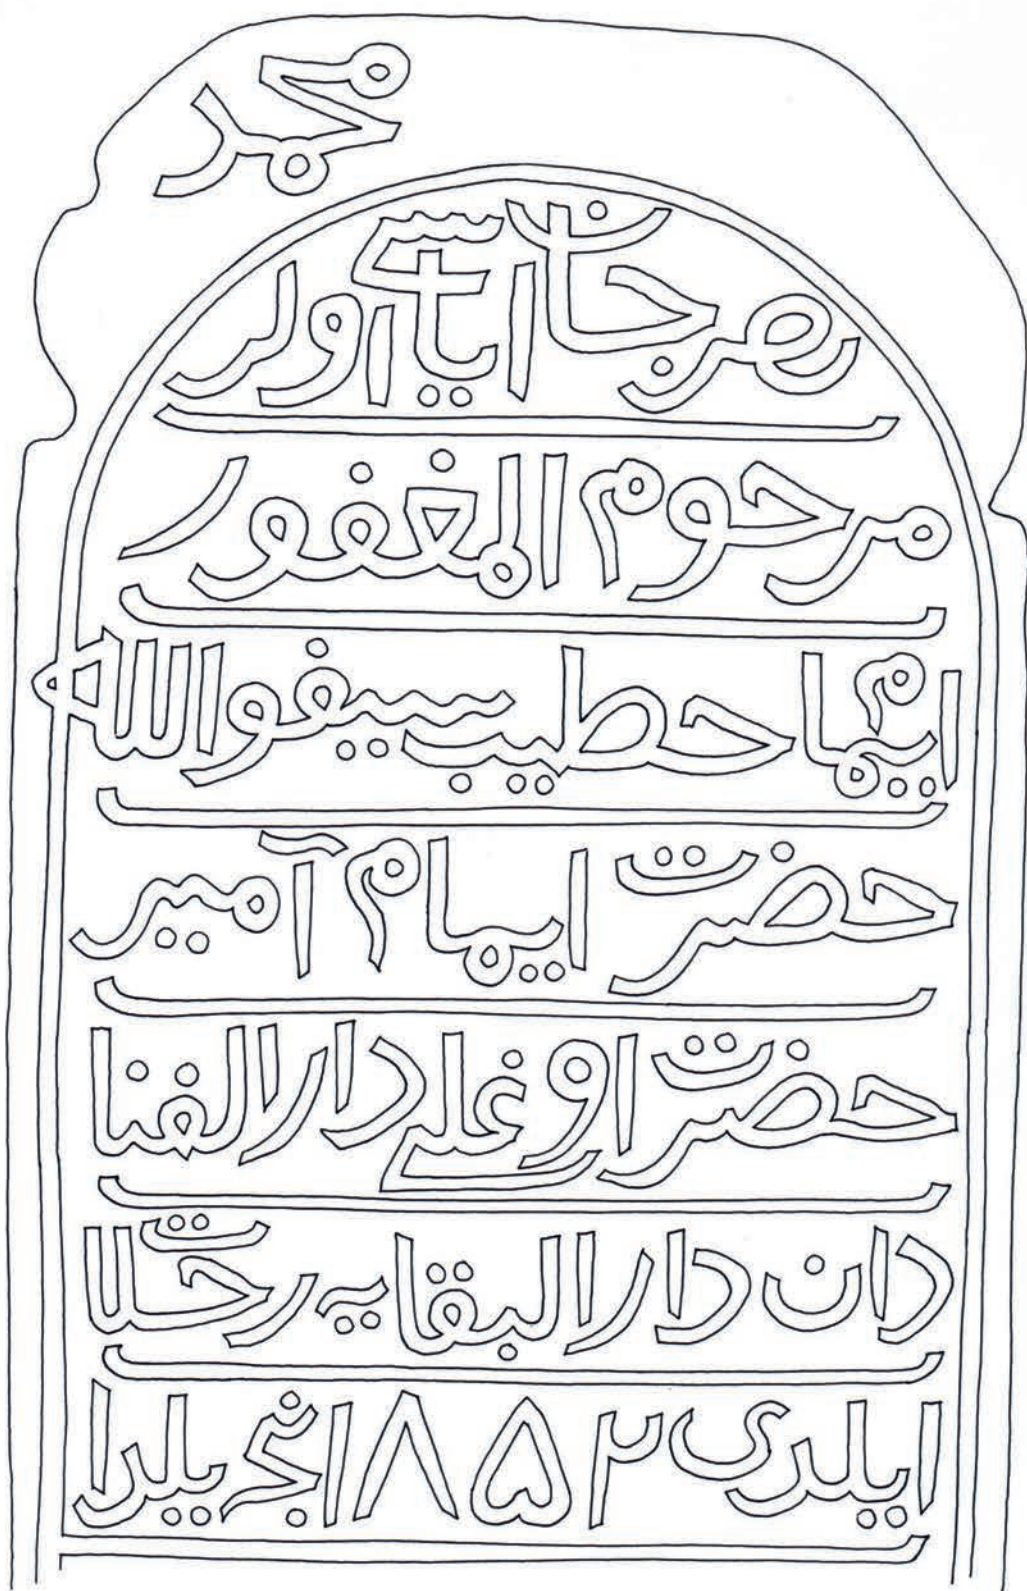 محمد
اولر
مرحوم المغفور
ايمام حطيب سيفوالله
حضرت ايمام آمير
حضرت اوغلے دارالفنا
دان دارالبقايه رحلات
ايلدى ۸۵۲ انجى يلدا